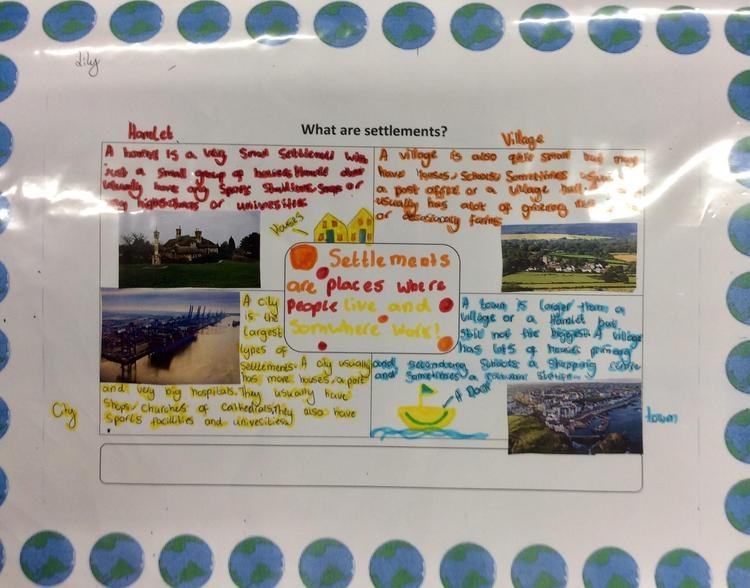 Lily
What are settlements?
Hamlet
A is a very small settlement with
just a small group of houses
usually have any sports shops or
or universities
Village
A village is also quite small but may
have houses, schools, sometimes
a post office or a village
usually has alot of
or farms
Houses
Settlements
are places where
people live and
somwhere work!
A city
is the
largest
types of
settlements. A city usually
has more houses, a port
and very big hospitals. They usually have
shops, churches of catherdrals, They also have
sports facilities and univesities
City
A town is larger than a
village or a Hamlet but
still not the biggest. A village
has lots of houses primary
and secondary schools a shopping centre
and sometimes a station.
A Boat
town